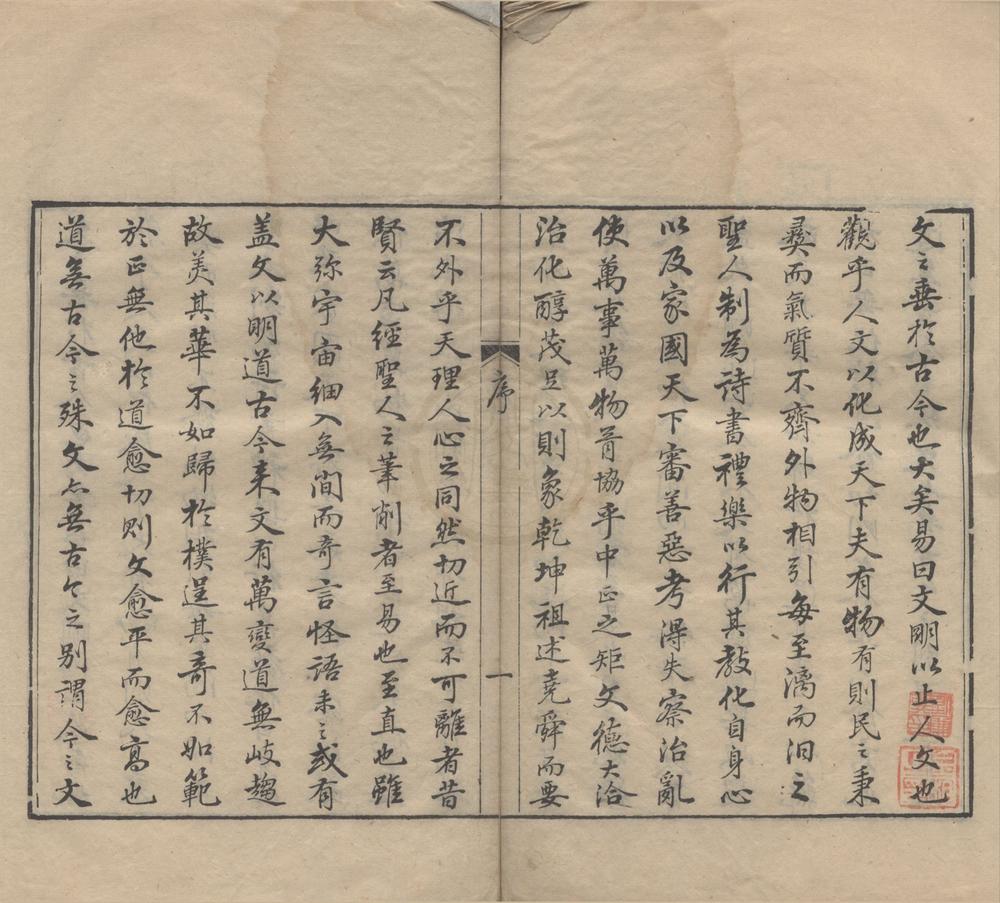 文之垂於古今也大矣易曰文明以止人文也
觀乎人文以化成天下夫有物有則民之秉
彝而氣質不齊外物相引每至漓而汩之
聖人制為詩書禮樂以行其教化自身心
以及家國天下審善惡考得失察治亂
使萬事萬物胥協乎中正之矩文德大洽
治化醇茂足以則象乾坤祖述堯舜而要
序
一
不外乎天理人心之同然切近而不可離者昔
賢云凡經聖人之筆削者至易也至直也雖
大弥宇宙細入無間而奇言怪語未之或有
盖文以明道古今来文有萬變道無歧趨
故美其華不如歸於樸逞其奇不如範
於正無他於道愈切則文愈平而愈高也
道無古今之殊文亦無古今之别謂今之文